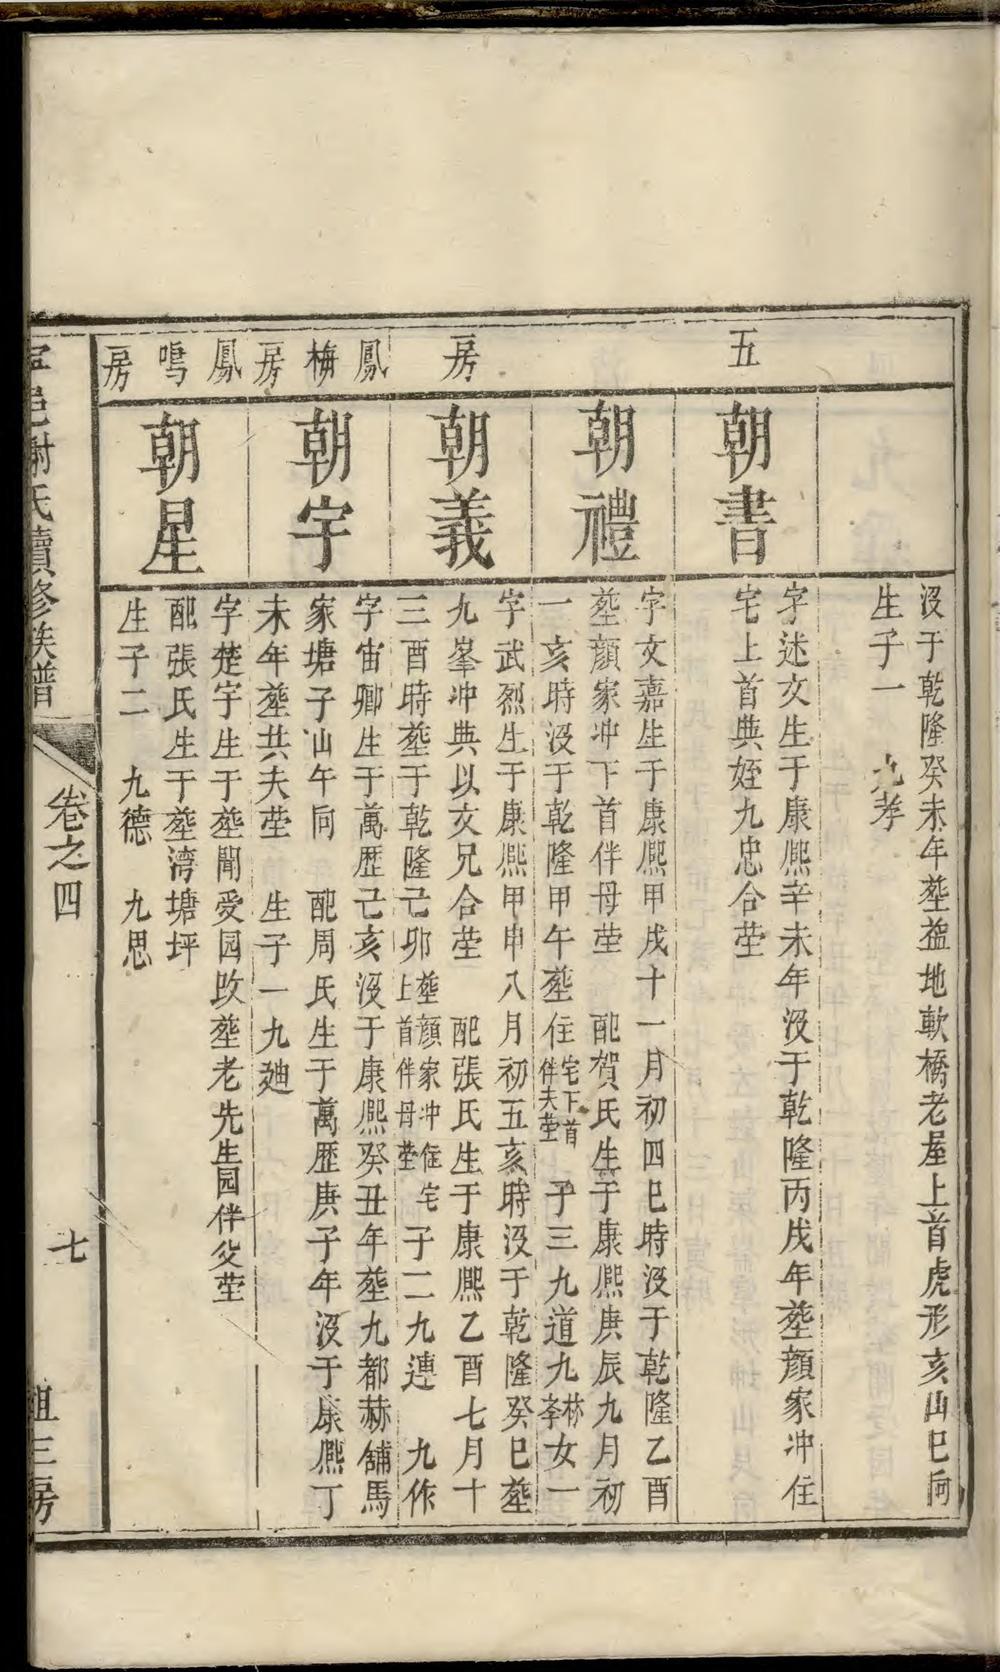 五
房
鳳梅房
鳳鳴房
沒于乾隆癸未年塟盤地軟橋老屋上首虎形亥山巳向
生子一 九孝
朝書
字述文生于康熙辛未年沒于乾隆丙戌年塟顏家冲住
宅上首與姪九忠合塋
朝禮
字文嘉生于康熙甲戌十一月初四巳時沒于乾隆乙酉
塟顏家冲下首伴母塋 配賀氏生于康熙庚辰九月初
一亥時沒于乾隆甲午塟住宅下首伴夫塋 子三九道九林九孝女一
朝義
字武烈生于康熙甲申八月初五亥時沒于乾隆癸巳塟
九峯冲與以文兄合塋 配張氏生于康熙乙酉七月十
三酉時塟于乾隆己卯塟顏家冲住宅上首伴母塋 子二九連 九作
朝宇
字宙卿生于萬歷己亥沒于康熙癸丑年塟九都赫舖馬
家塘子山午向 配周氏生于萬歷庚子年沒于康熙丁
未年塟共夫塋 生子一九廸
朝星
字楚宇生于塟聞受园改塟老先生园伴父塋
配張氏生于塟湾塘坪
生子二 九德 九思
邑謝氏續修族譜
卷之四
七
祖三房